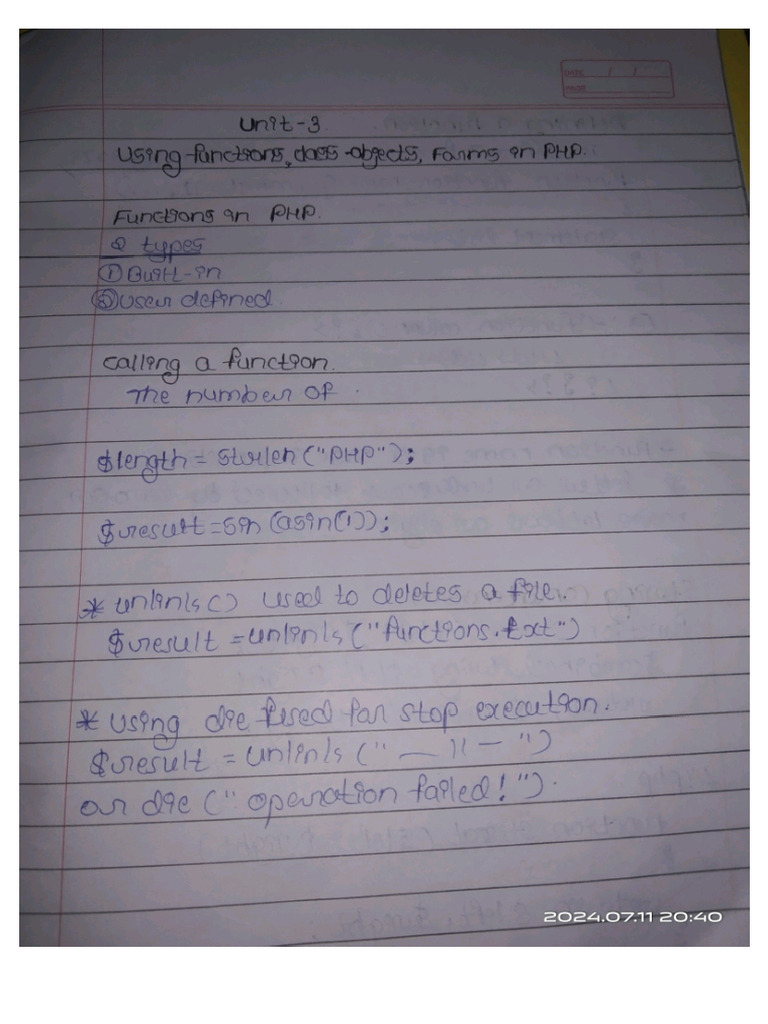 DATE / /
PAGE
Unit-3
Using functions, class-objects, Forms in PHP.
Functions in PHP.
2 types
① Built-in
② User defined.
Calling a function.
The number of
$length = strlen("PHP");
$result = sin(asin(1));
* unlink() used to deletes a file.
$result = unlink("functions.txt")
* Using die used for stop execution.
$result = unlink(" — 11 — ")
or die ("operation failed!").
2024.07.11 20:40